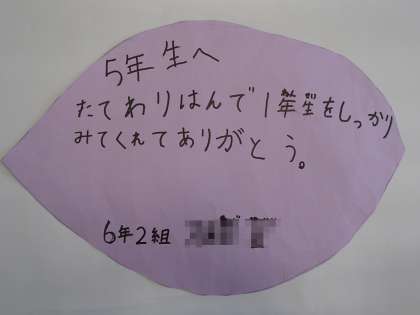 5年生へ
たてわりはんで1年生をしっかり
みてくれてありがとう。
6年2組